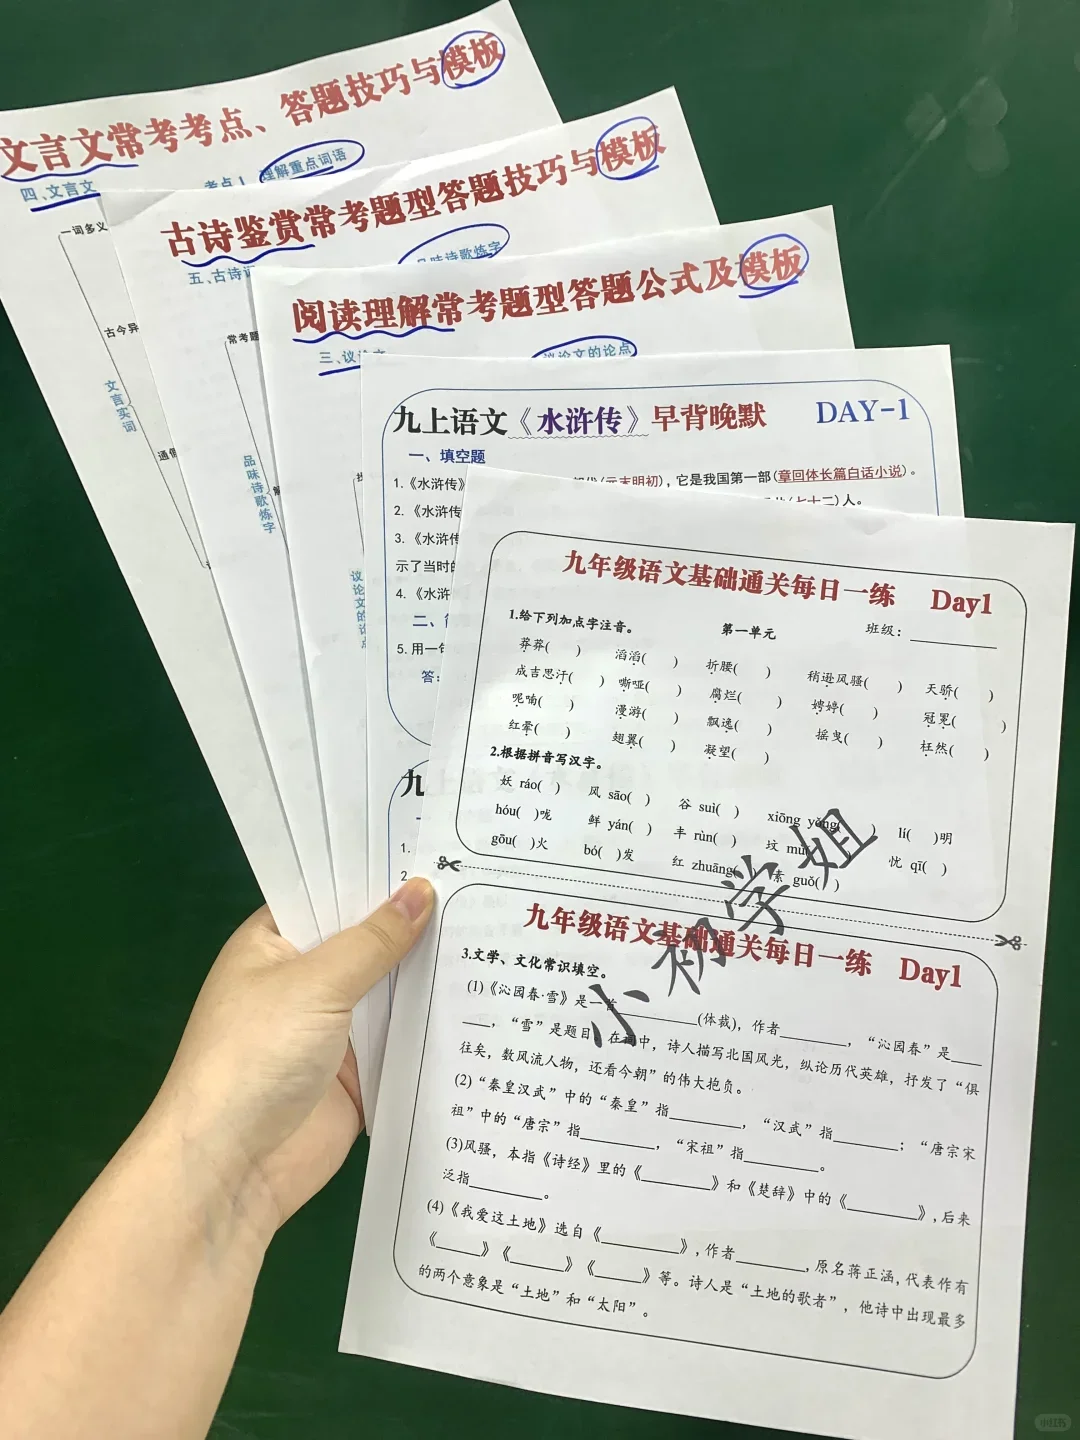 文言文常考考点、答题技巧与模板
四、文言文
考点1 理解重点词语
一词多义
古今异
文言实词
通假
古诗鉴赏常考题型答题技巧与模板
五、古诗词
品味诗歌炼字
常考题
品味诗歌炼字
阅读理解常考题型答题公式及模板
三、议论文
议论文的论点
议论文的论点
九上语文《水浒传》早背晚默 DAY-1
一、填空题
1.《水浒传》
(元末明初)，它是我国第一部(章回体长篇白话小说)。
2.《水浒传
(七十二)人。
3.《水浒传
示了当时的
4.《水浒
二、
5.用一句
答：
九
1.
2
九年级语文基础通关每日一练 Day1
1.给下列加点字注音。 第一单元 班级：
莽莽( ) 滔滔( ) 折腰( ) 稍逊风骚( ) 天骄( )
成吉思汗( ) 嘶哑( ) 腐烂( ) 娉婷( ) 冠冕( )
呢喃( ) 漫游( ) 飘逸( ) 摇曳( ) 枉然( )
红晕( ) 翅翼( ) 凝望( )
2.根据拼音写汉字。
妖 ráo( ) 风 sāo( ) 谷 suì( ) xiōng yǒng( ) lí( )明
hóu( )咙 鲜 yán( ) 丰 rùn( ) 坟 mù( ) 忧 qī( )
gōu( )火 bó( )发 红 zhuāng( ) 素 guǒ( )
小初学姐
九年级语文基础通关每日一练 Day1
3.文学、文化常识填空。
(1)《沁园春·雪》是一首________(体裁)，作者________，“沁园春”是____
____，“雪”是题目。在词中，诗人描写北国风光，纵论历代英雄，抒发了“俱
往矣，数风流人物，还看今朝”的伟大抱负。
(2)“秦皇汉武”中的“秦皇”指________，“汉武”指________；“唐宗宋
祖”中的“唐宗”指________，“宋祖”指________。
(3)风骚，本指《诗经》里的《________》和《楚辞》中的《________》,后来
泛指________。
(4)《我爱这土地》选自《________》,作者________,原名蒋正涵,代表作有
《_____》《______》《_____》等。诗人是“土地的歌者”，他诗中出现最多
的两个意象是“土地”和“太阳”。
小红书